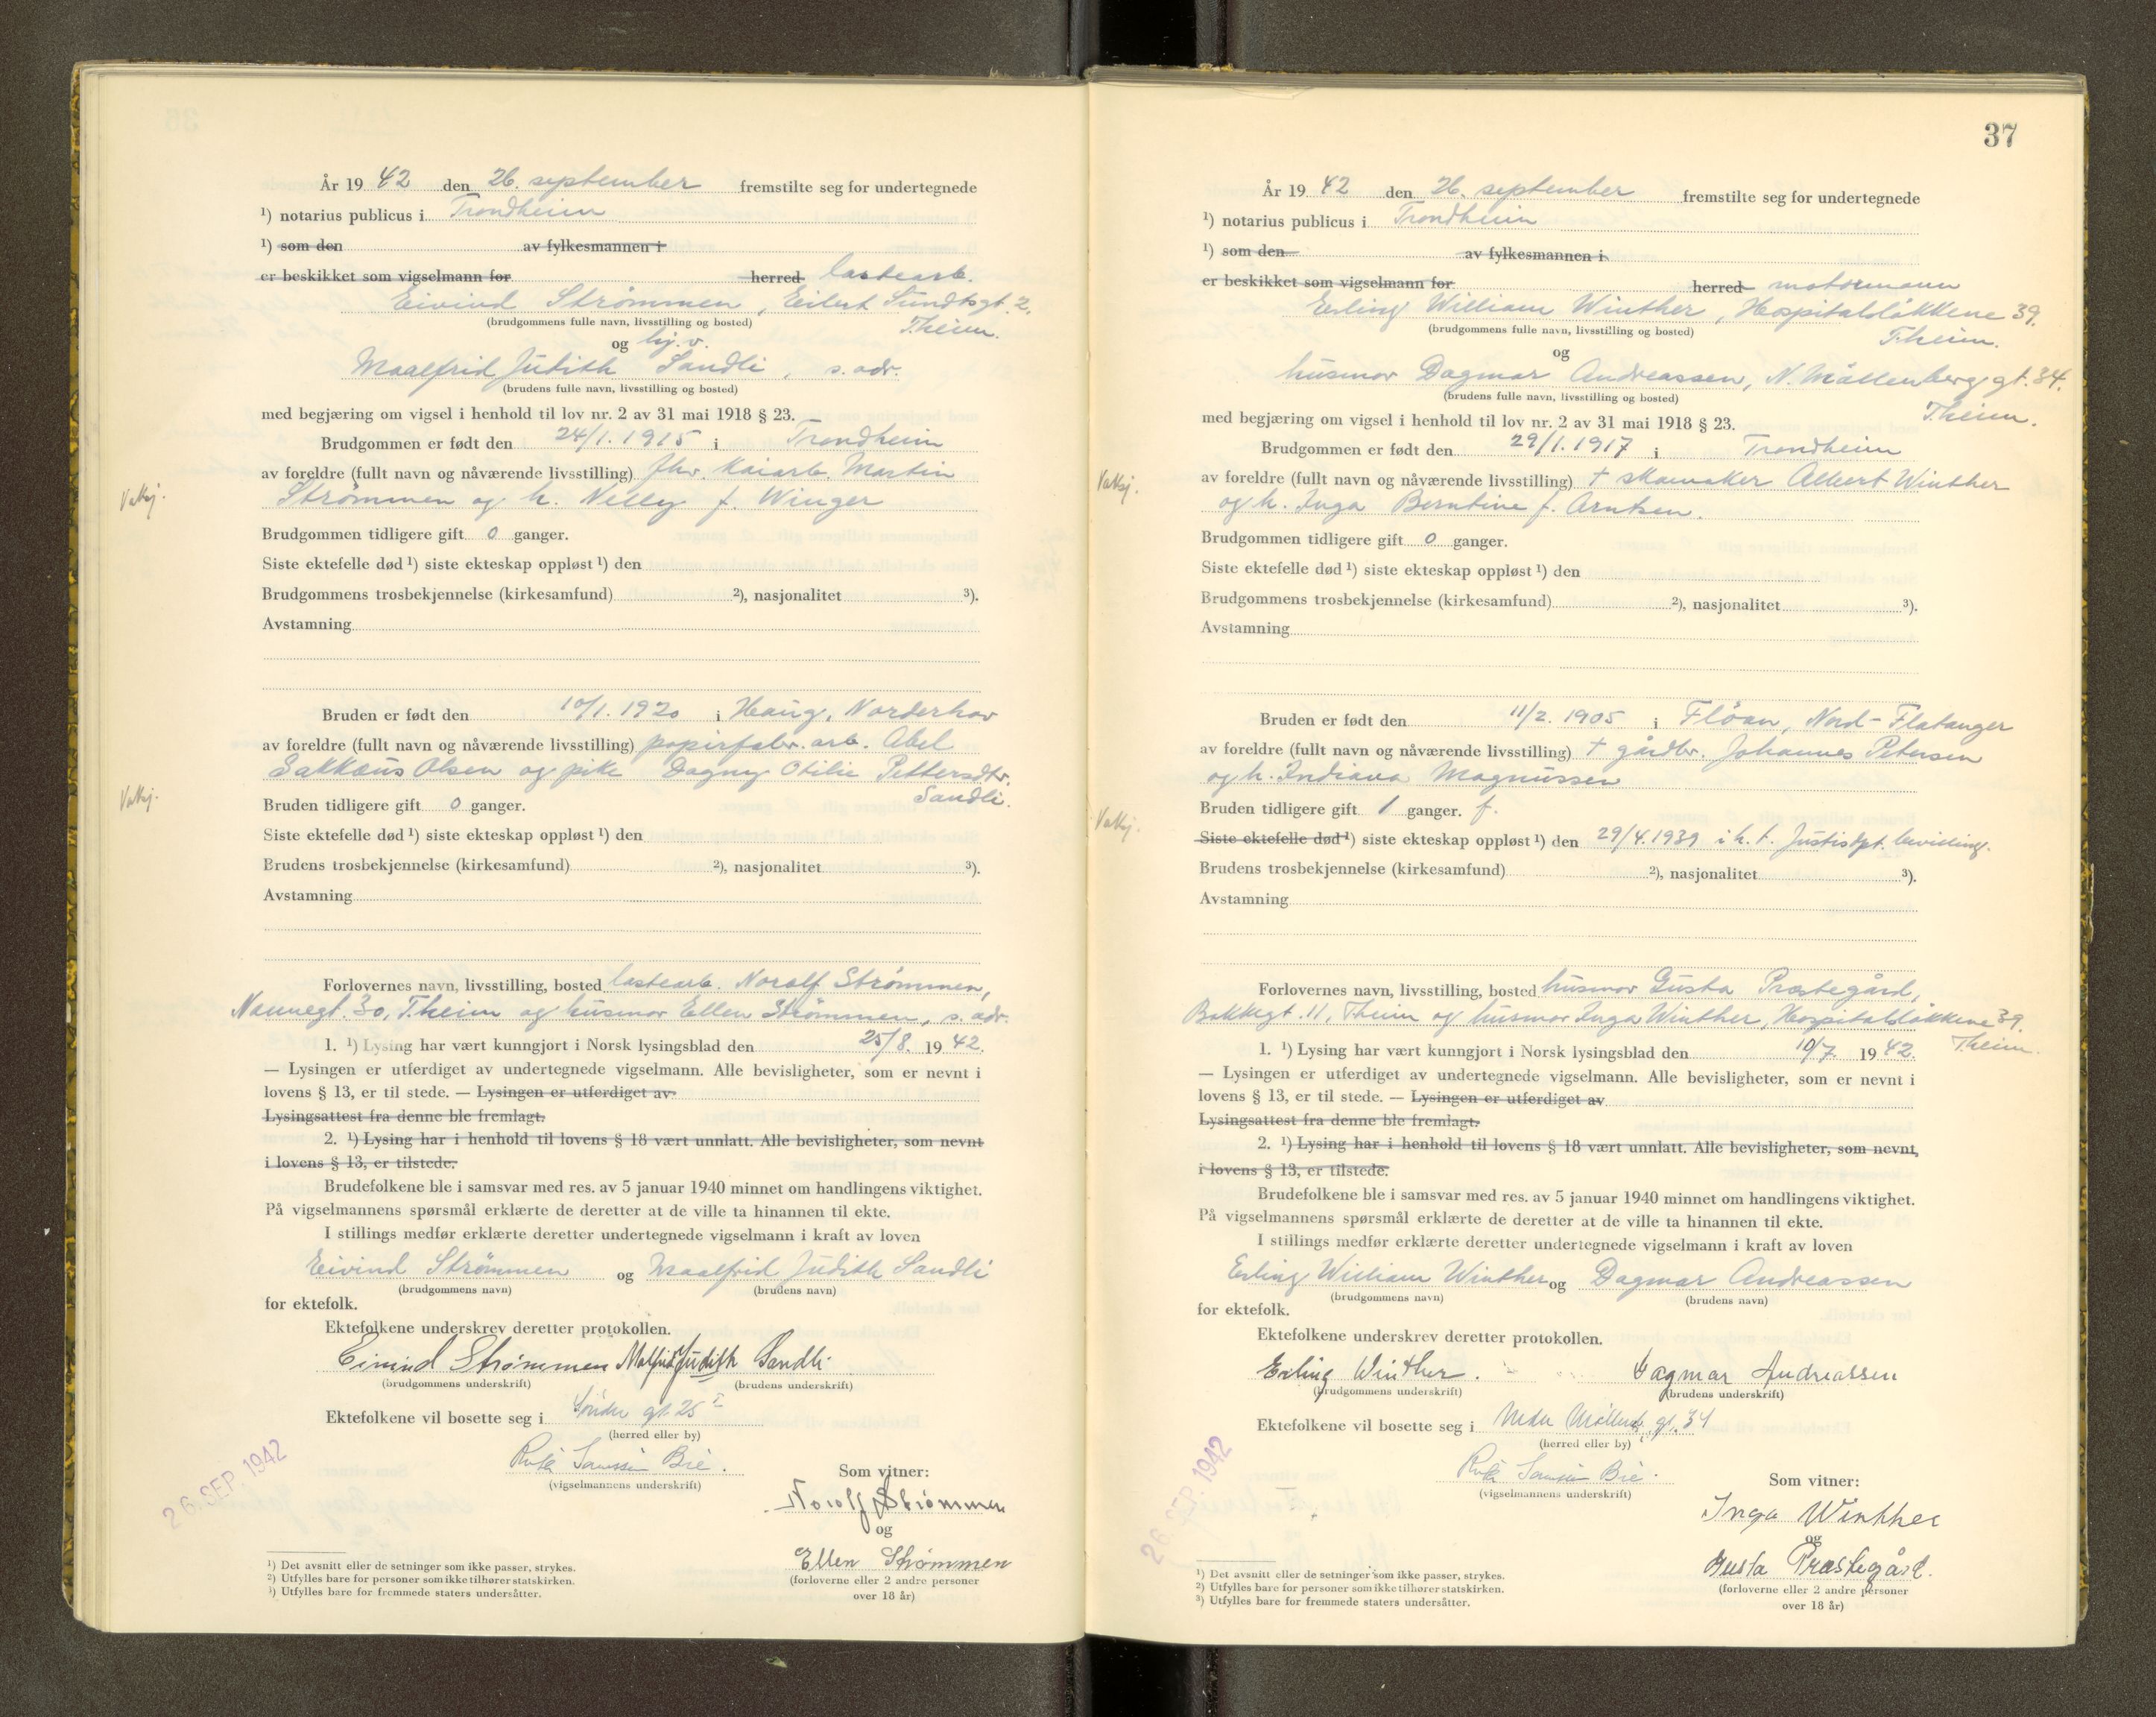 År 19 42 den 26. september fremstilte seg for undertegnede
¹) notarius publicus i Trondheim
¹) som den av fylkesmannen i
er beskikket som vigselmann for herred lastearb.
Eivind Strømmen, Eilert Sundtsgt. 2.
(brudgommens fulle navn, livsstilling og bosted) T.heim.
og hj.v.
Maalfrid Judith Sandli, s. adr.
(brudens fulle navn, livsstilling og bosted)
med begjæring om vigsel i henhold til lov nr. 2 av 31 mai 1918 § 23.
Brudgommen er født den 24/1. 1915 i Trondheim
av foreldre (fullt navn og nåværende livsstilling) fhv. kaiarb. Martin
Vattsj. Strømmen og h. Nelly f. Winger
Brudgommen tidligere gift 0 ganger.
Siste ektefelle død ¹) siste ekteskap oppløst ¹) den
Brudgommens trosbekjennelse (kirkesamfund) ²), nasjonalitet ³).
Avstamning
Bruden er født den 10/1. 1920 i Haug, Norderhov
av foreldre (fullt navn og nåværende livsstilling) papirfabr. arb. Abel
Sakkæus Olsen og pike Dagny Otilie Pettersdtr.
Sandli.
Bruden tidligere gift 0 ganger.
Siste ektefelle død ¹) siste ekteskap oppløst ¹) den
Brudens trosbekjennelse (kirkesamfund) ²), nasjonalitet ³).
Avstamning
Forlovernes navn, livsstilling, bosted lastearb. Norolf Strømmen,
Nannegt. 30, T.heim og husmor Ellen Strømmen, s. adr.
1. ¹) Lysing har vært kunngjort i Norsk lysingsblad den 25/8. 19 42.
— Lysingen er utferdiget av undertegnede vigselmann. Alle bevisligheter, som er nevnt i
lovens § 13, er til stede. — Lysingen er utferdiget av
Lysingsattest fra denne ble fremlagt.
2. ¹) Lysing har i henhold til lovens § 18 vært unnlatt. Alle bevisligheter, som nevnt
i lovens § 13, er tilstede.
Brudefolkene ble i samsvar med res. av 5 januar 1940 minnet om handlingens viktighet.
På vigselmannens spørsmål erklærte de deretter at de ville ta hinannen til ekte.
I stillings medfør erklærte deretter undertegnede vigselmann i kraft av loven
Eivind Strømmen og Maalfrid Judith Sandli
(brudgommens navn) (brudens navn)
for ektefolk.
Ektefolkene underskrev deretter protokollen.
Eivind Strømmen Malfrid Judith Sandli
(brudgommens underskrift) (brudens underskrift)
Ektefolkene vil bosette seg i Søndre gt. 25
(herred eller by)
(vigselmannens underskrift)
26. SEP. 1942
Som vitner:
Norolf Strømmen
og
Ellen Strømmen
(forloverne eller 2 andre personer
over 18 år)
¹) Det avsnitt eller de setninger som ikke passer, strykes.
²) Utfylles bare for personer som ikke tilhører statskirken.
³) Utfylles bare for fremmede staters undersåtter.
37
År 19 42 den 26. september fremstilte seg for undertegnede
¹) notarius publicus i Trondheim
¹) som den av fylkesmannen i
er beskikket som vigselmann for herred motormann
Erling William Winther, Hospitalsløkkene 39.
(brudgommens fulle navn, livsstilling og bosted) T.heim.
og
husmor Dagmar Andreassen, N. Møllenberg gt. 34.
(brudens fulle navn, livsstilling og bosted)
T.heim.
med begjæring om vigsel i henhold til lov nr. 2 av 31 mai 1918 § 23.
Brudgommen er født den 29/1. 1917 i Trondheim
av foreldre (fullt navn og nåværende livsstilling) † skomaker Albert Winther
og h. Inga Berntine f. Arntsen.
Brudgommen tidligere gift 0 ganger.
Siste ektefelle død ¹) siste ekteskap oppløst ¹) den
Brudgommens trosbekjennelse (kirkesamfund) ²), nasjonalitet ³).
Avstamning
Bruden er født den 11/2. 1905 i Fløan, Nord-Flatanger
av foreldre (fullt navn og nåværende livsstilling) † gårdbr. Johannes Petersen
og h. Indiana Magnussen
Bruden tidligere gift 1 ganger. f.
Siste ektefelle død ¹) siste ekteskap oppløst ¹) den 29/4. 1939 i h. t. Justisdpt. bevilling.
Brudens trosbekjennelse (kirkesamfund) ²), nasjonalitet ³).
Avstamning
Forlovernes navn, livsstilling, bosted husmor Gusta Præstegård,
Bakkegt. 11, T.heim og husmor Inga Winther, Hospitalsløkkene 39.
T.heim.
1. ¹) Lysing har vært kunngjort i Norsk lysingsblad den 10/7. 19 42.
— Lysingen er utferdiget av undertegnede vigselmann. Alle bevisligheter, som er nevnt i
lovens § 13, er til stede. — Lysingen er utferdiget av
Lysingsattest fra denne ble fremlagt.
2. ¹) Lysing har i henhold til lovens § 18 vært unnlatt. Alle bevisligheter, som nevnt,
i lovens § 13, er tilstede.
Brudefolkene ble i samsvar med res. av 5 januar 1940 minnet om handlingens viktighet.
På vigselmannens spørsmål erklærte de deretter at de ville ta hinannen til ekte.
I stillings medfør erklærte deretter undertegnede vigselmann i kraft av loven
Erling William Winther og Dagmar Andreassen
(brudgommens navn) (brudens navn)
for ektefolk.
Ektefolkene underskrev deretter protokollen.
Erling Winther. Dagmar Andreassen
(brudgommens underskrift) (brudens underskrift)
Ektefolkene vil bosette seg i Nedre Møllenb. gt. 34
(herred eller by)
(vigselmannens underskrift)
26. SEP. 1942
Som vitner:
Inga Winther
og
Gusta Præstegård.
(forloverne eller 2 andre personer
over 18 år)
¹) Det avsnitt eller de setninger som ikke passer, strykes.
²) Utfylles bare for personer som ikke tilhører statskirken.
³) Utfylles bare for fremmede staters undersåtter.